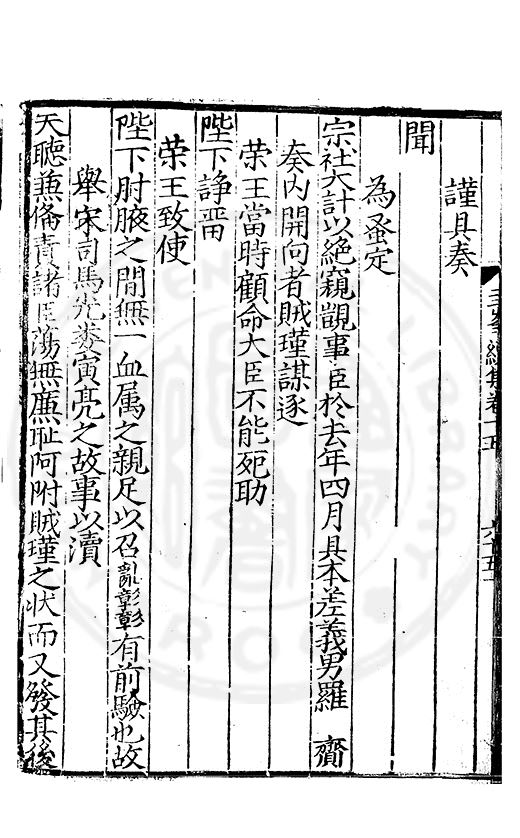 謹具奏
聞
為蚤定
宗社大計以絕窺覬事臣於去年四月具本差義男羅 齎
奏內開向者賊瑾謀逐
荣王當時顧命大臣不能死助
陛下諍畱
荣王致使
陛下肘腋之間無一血属之親足以召亂彰彰有前驗也故
舉宋司馬光婁寅亮之故事以瀆
天聽兼俻責諸臣蕩無廉耻阿附賊瑾之状而又發其後
峯 集卷十五